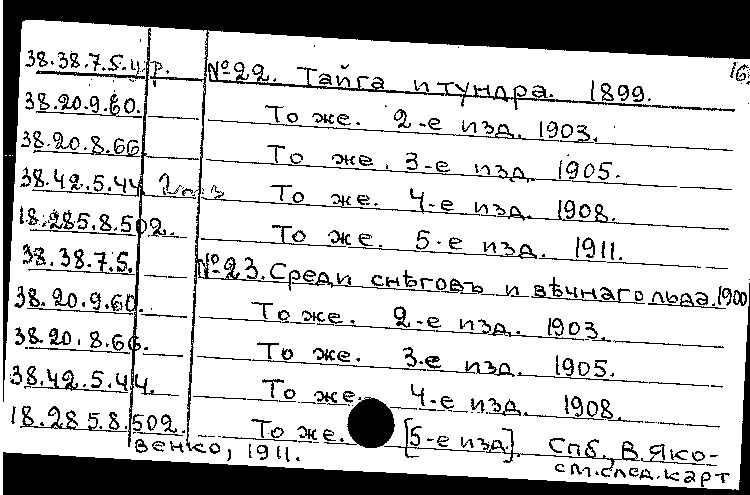 38.38.7.5. ц р. №22. Тайга и тундра. 1899. 16
38.20.9.60. То же. 2-е изд. 1903.
38.20.8.66 То же. 3-е изд. 1905.
38.42.5.44 2 экз То же. 4-е изд. 1908.
18.285.8.502. То же. 5-е изд. 1911.
38.38.7.5. №23. Среди снѣговъ и вѣчнаго льда. 1900
38.20.9.60. То же. 2-е изд. 1903.
38.20.8.66. То же. 3-е изд. 1905.
38.42.5.44. То же. 4-е изд. 1908.
18.285.8.502. То же. [5-е изд]. Спб., В. Яко-
венко, 1911. см. след. карт